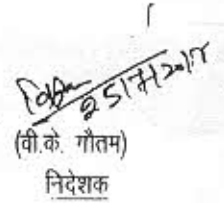 25/7/2017
(वी.के. गौतम)
निदेशक